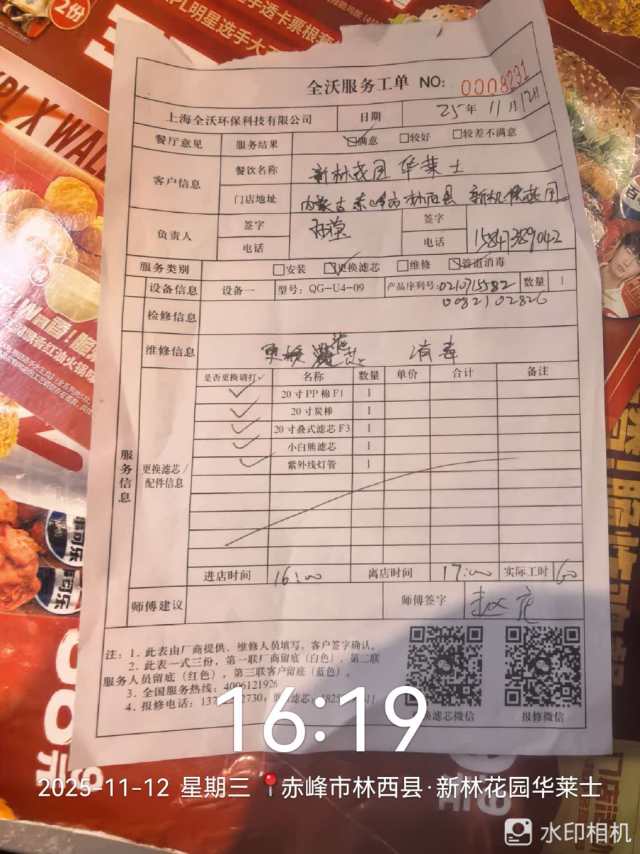 2份
手透卡票根
PL明星选手大
PL X WAL
全沃服务工单 NO: 0008231
上海全沃环保科技有限公司 日期 25年11月12日
餐厅意见 服务结果 ☑满意 □较好 □较差不满意
客户信息 餐饮名称 新林花园华莱士
门店地址 内蒙古赤峰市林西县新林花园
负责人 签字 签字
电话 电话 15847389042
服务类别 □安装 ☑更换滤芯 □维修 ☑管道消毒
设备信息 设备一 型号: QG-U4-09 产品序列号: 0210715582 数量 1
0082102826
检修信息
维修信息 更换滤芯 消毒
服务信息 更换滤芯/配件信息
是否更换请打✓ 名称 数量 单价 合计 备注
✓ 20寸PP棉F1 1
✓ 20寸炭棒 1
✓ 20寸叠式滤芯F3 1
✓ 小白熊滤芯 1
✓ 紫外线灯管 1
进店时间 16:00 离店时间 17:00 实际工时 60
师傅建议 师傅签字
注: 1. 此表由厂商提供、维修人员填写，客户签字确认。
2. 此表一式三份，第一联厂商留底（白色），第二联
服务人员留底（红色），第三联客户留底（蓝色）。
3. 全国服务热线: 4006121926
4. 报修电话:
换滤芯微信 报修微信
16:19
2025-11-12 星期三 赤峰市林西县·新林花园华莱士
水印相机